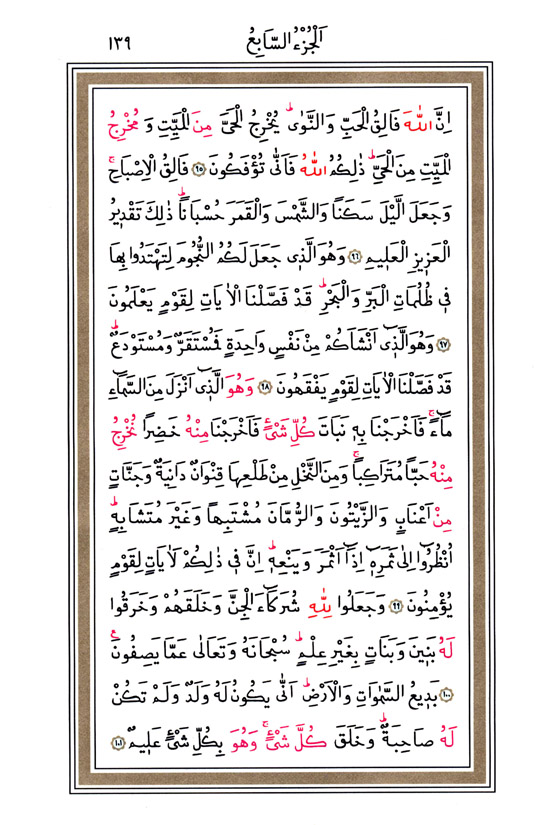 اَلْجُزْءُ السَّابِعُ ١٣٩
اِنَّ اللّٰهَ فَالِقُ الْحَبِّ وَالنَّوٰىۜ يُخْرِجُ الْحَيَّ مِنَ الْمَيِّتِ وَمُخْرِجُ
الْمَيِّتِ مِنَ الْحَيِّۜ ذٰلِكُمُ اللّٰهُ فَاَنّٰى تُؤْفَكُونَ ﴿٩٥﴾ فَالِقُ الْاِصْبَاحِۚ
وَجَعَلَ الَّيْلَ سَكَنًا وَالشَّمْسَ وَالْقَمَرَ حُسْبَانًاۜ ذٰلِكَ تَقْدِيرُ
الْعَزِيزِ الْعَلِيمِ ﴿٩٦﴾ وَهُوَ الَّذِي جَعَلَ لَكُمُ النُّجُومَ لِتَهْتَدُوا بِهَا
فِي ظُلُمَاتِ الْبَرِّ وَالْبَحْرِۜ قَدْ فَصَّلْنَا الْاٰيَاتِ لِقَوْمٍ يَعْلَمُونَ
﴿٩٧﴾ وَهُوَ الَّذِٓي اَنْشَاَكُمْ مِنْ نَفْسٍ وَاحِدَةٍ فَمُسْتَقَرٌّ وَمُسْتَوْدَعٌۜ
قَدْ فَصَّلْنَا الْاٰيَاتِ لِقَوْمٍ يَفْقَهُونَ ﴿٩٨﴾ وَهُوَ الَّذِٓي اَنْزَلَ مِنَ السَّمَٓاءِ
مَٓاءًۚ فَاَخْرَجْنَا بِهِ نَبَاتَ كُلِّ شَيْءٍ فَاَخْرَجْنَا مِنْهُ خَضِرًا نُخْرِجُ
مِنْهُ حَبًّا مُتَرَاكِبًاۚ وَمِنَ النَّخْلِ مِنْ طَلْعِهَا قِنْوَانٌ دَانِيَةٌ وَجَنَّاتٍ
مِنْ اَعْنَابٍ وَالزَّيْتُونَ وَالرُّمَّانَ مُشْتَبِهًا وَغَيْرَ مُتَشَابِهٍۜ
اُنْظُرُٓوا اِلٰى ثَمَرِهِٓ اِذَٓا اَثْمَرَ وَيَنْعِهِۜ اِنَّ فِي ذٰلِكُمْ لَاٰيَاتٍ لِقَوْمٍ
يُؤْمِنُونَ ﴿٩٩﴾ وَجَعَلُوا لِلّٰهِ شُرَكَٓاءَ الْجِنَّ وَخَلَقَهُمْ وَخَرَقُوا
لَهُ بَنِينَ وَبَنَاتٍ بِغَيْرِ عِلْمٍۜ سُبْحَانَهُ وَتَعَالٰى عَمَّا يَصِفُونَ۟
﴿١٠٠﴾ بَدِيعُ السَّمٰوَاتِ وَالْاَرْضِۜ اَنّٰى يَكُونُ لَهُ وَلَدٌ وَلَمْ تَكُنْ
لَهُ صَاحِبَةٌۜ وَخَلَقَ كُلَّ شَيْءٍۚ وَهُوَ بِكُلِّ شَيْءٍ عَلِيمٌ ﴿١٠١﴾